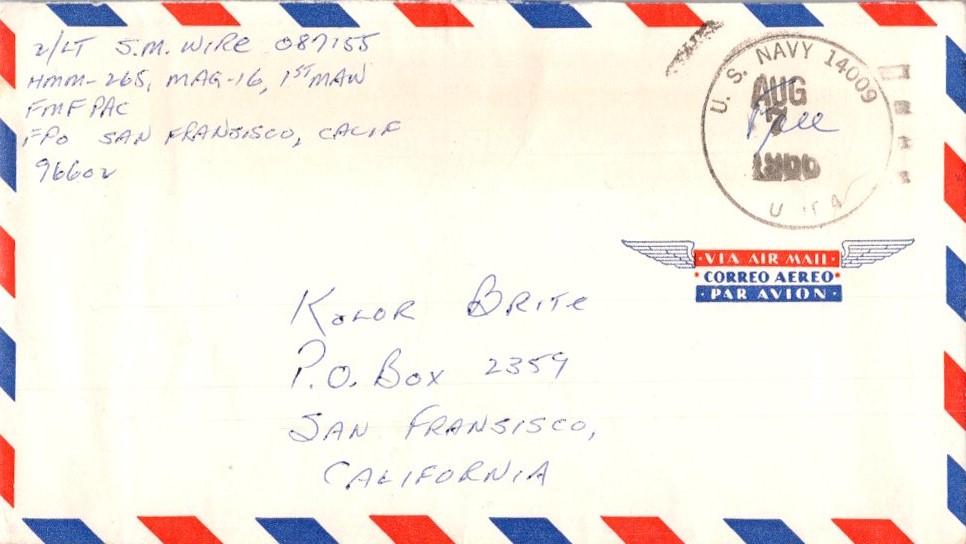 2/LT S.M. WIRE 087155
HMM-265, MAG-16, 1ST MAW
FMFPAC
FPO SAN FRANSISCO, CALIF
96602
U. S. NAVY 14009
AUG
7
Free
VIA AIR MAIL
CORREO AEREO
PAR AVION
KOLOR BRITE
P.O. BOX 2359
SAN FRANSISCO,
CALIFORNIA